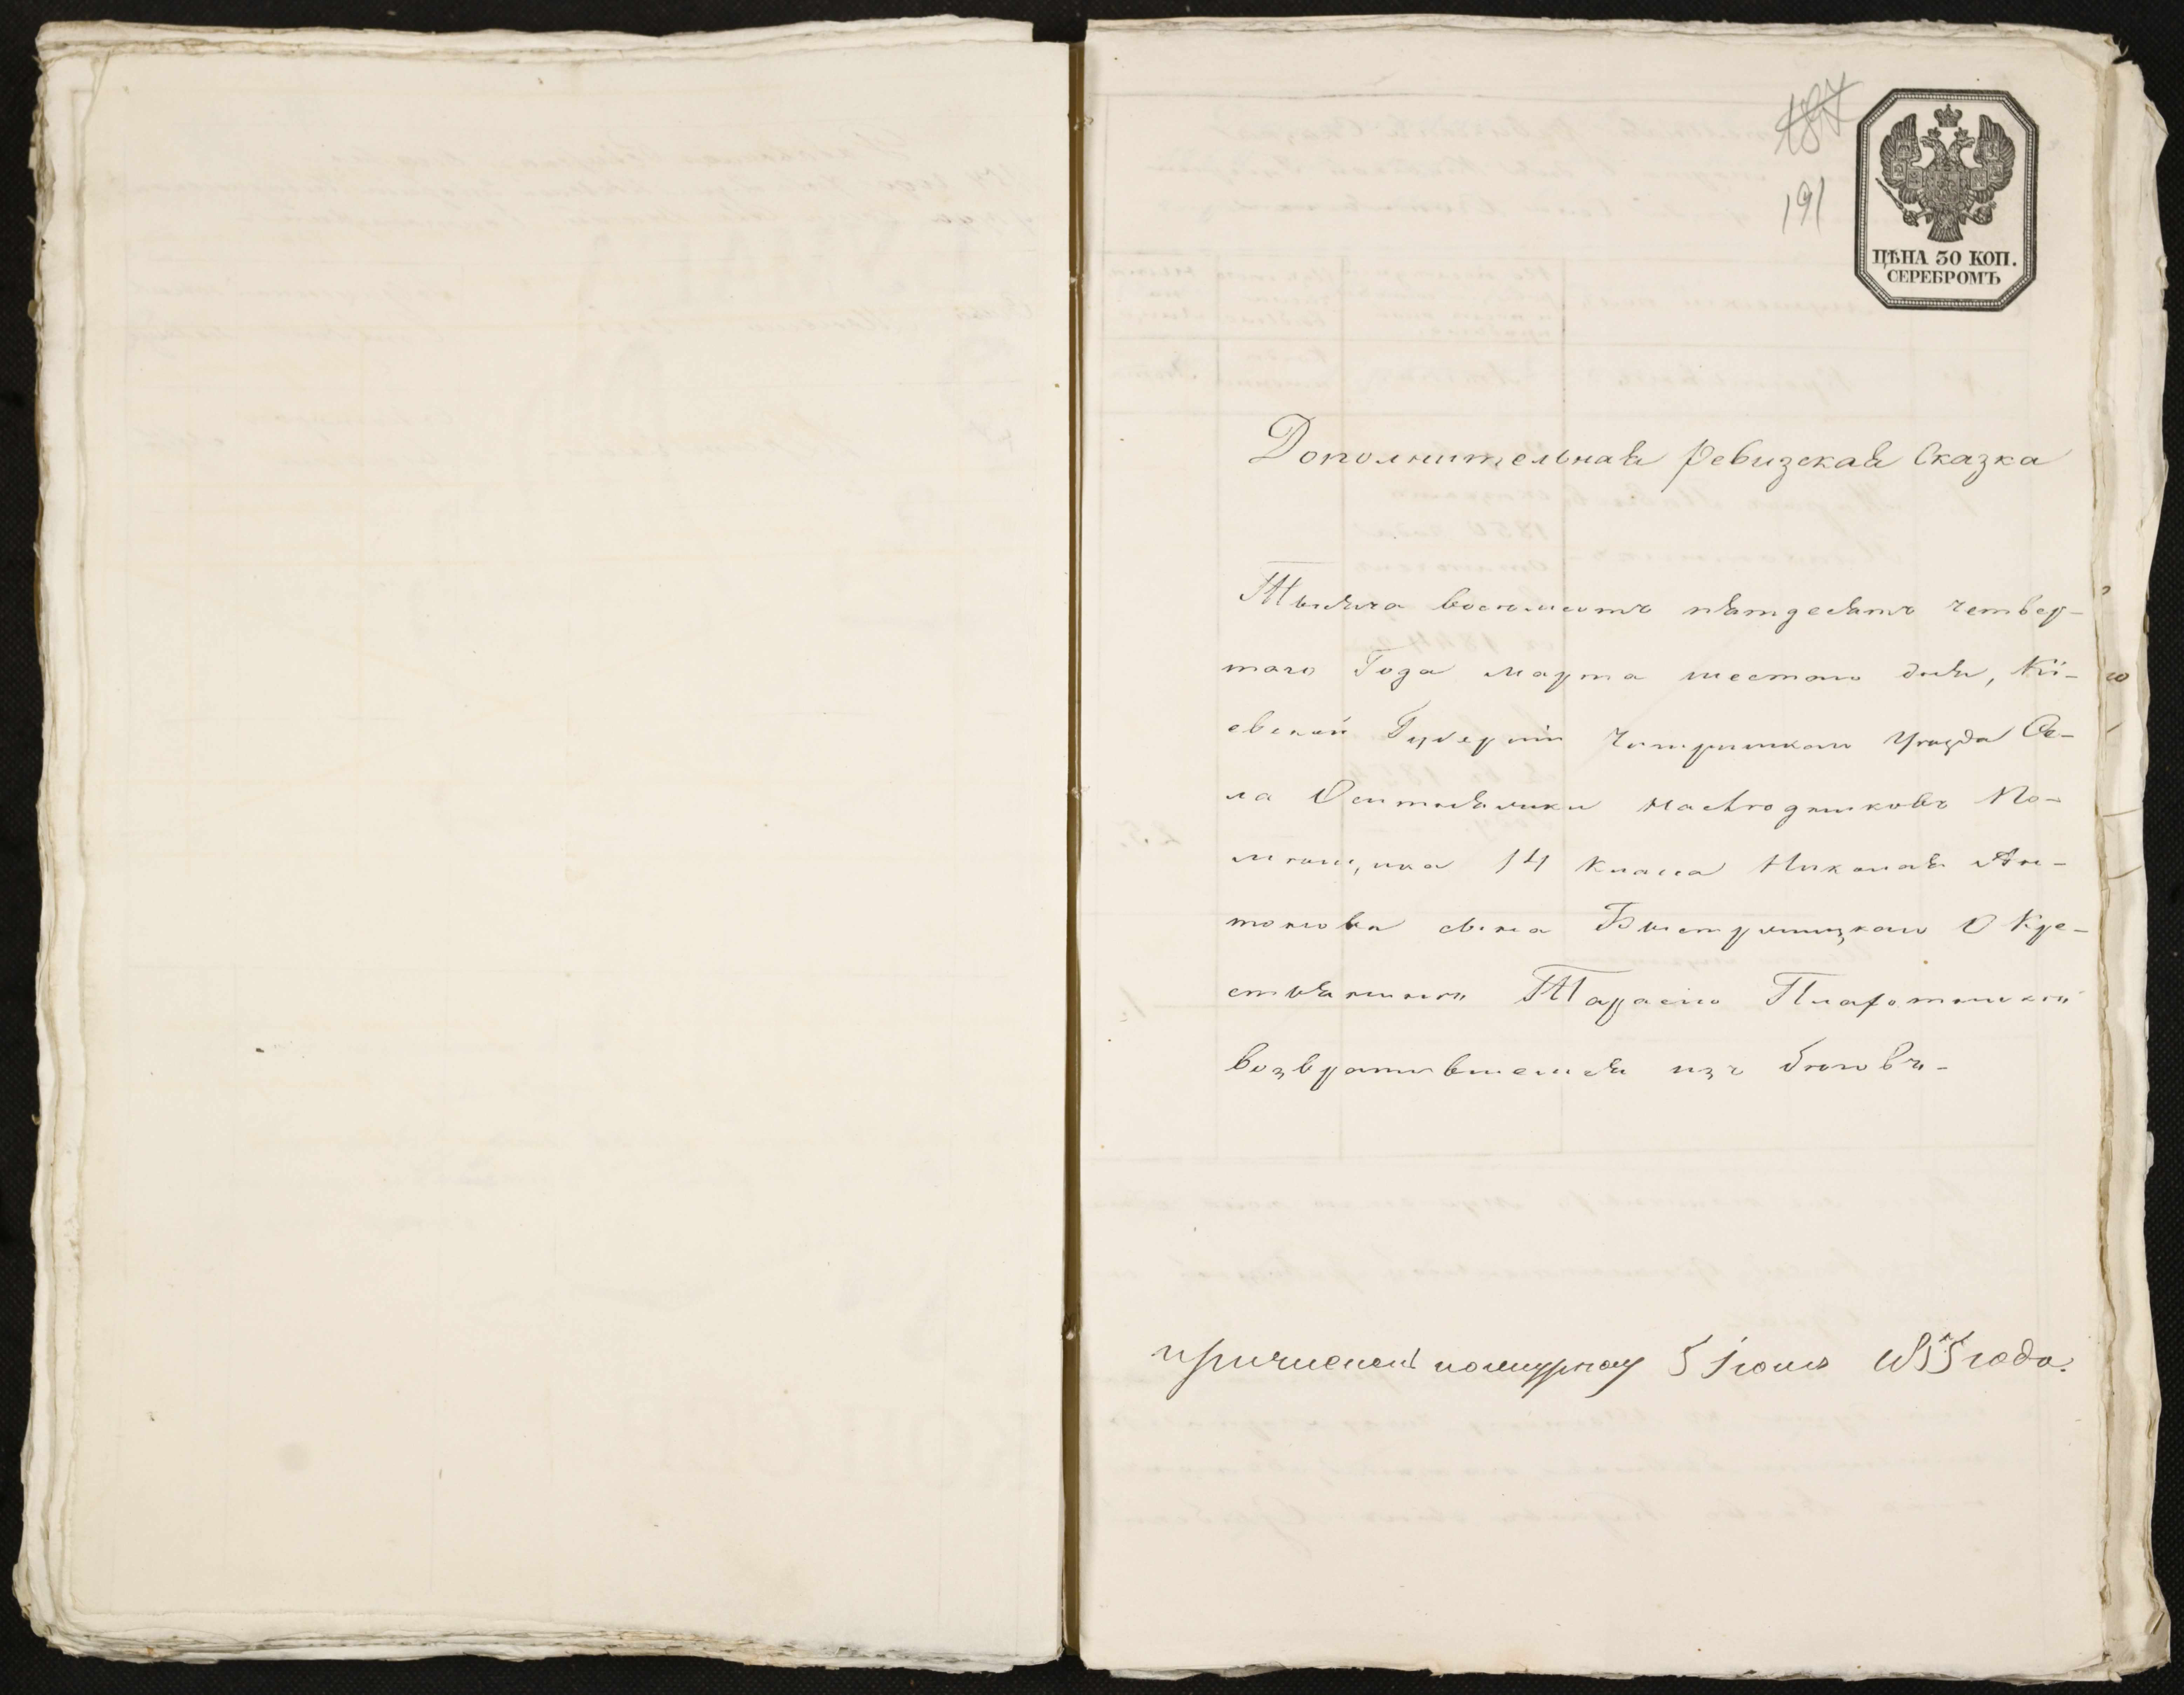 187
191
ЦѢНА 30 КОП.
СЕРЕБРОМЪ
Дополнительная Ревизская Сказка
Тысяча восемьсотъ пятдесятъ четвер-
таго Года марта шестаго дня, Кі-
евской Губерніи Чигиринскаго Уѣзда Се-
ла Оситняжки наслѣдниковъ По-
мѣщика 14 класса Николая Ан-
тонова сына Быстрицкаго О Кре-
стьянинѣ Тарасѣ
возвратившемся изъ бѣговъ-
5 Іюля 1855 года.